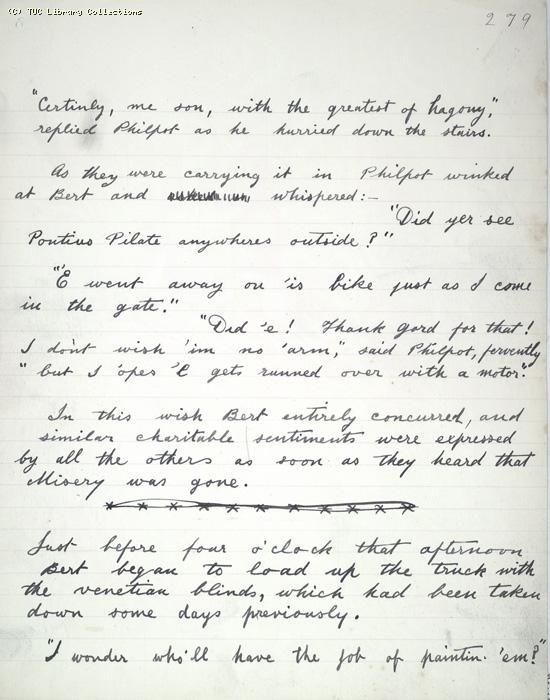 (C) TUC Library Collections
279
"Certinly, me son, with the greatest of hagony,"
replied Philpot as he hurried down the stairs.
As they were carrying it in Philpot winked
at Bert and whispered:-
"Did yer see
Pontius Pilate anywheres outside?"
"'E went away on 'is bike just as I come
in the gate."
"Did 'e! Thank Gord for that!
I don't wish 'im no 'arm," said Philpot, fervently
"but I 'opes 'E gets runned over with a motor."
In this wish Bert entirely concurred, and
similar charitable sentiments were expressed
by all the others as soon as they heard that
Misery was gone.
x x x x x x x x x x x
Just before four o'clock that afternoon
Bert began to load up the truck with
the venetian blinds, which had been taken
down some days previously.
"I wonder who'll have the job of paintin. 'em?"